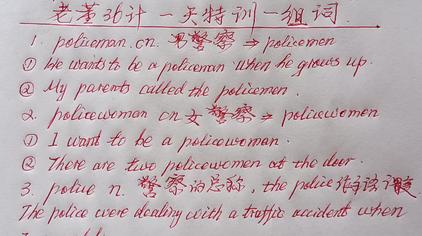 老黄36计一天特训一组词.
1. policeman. cn. 男警察 ⇒ policemen
① He wants to be a policeman when he grows up.
② My parents called the policemen.
2. policewoman cn 女警察 ⇒ policewomen
① I want to be a policewoman.
② There are two policewomen at the door.
3. police n. 警察的总称, the police 作主语
The police were dealing with a traffic accident when